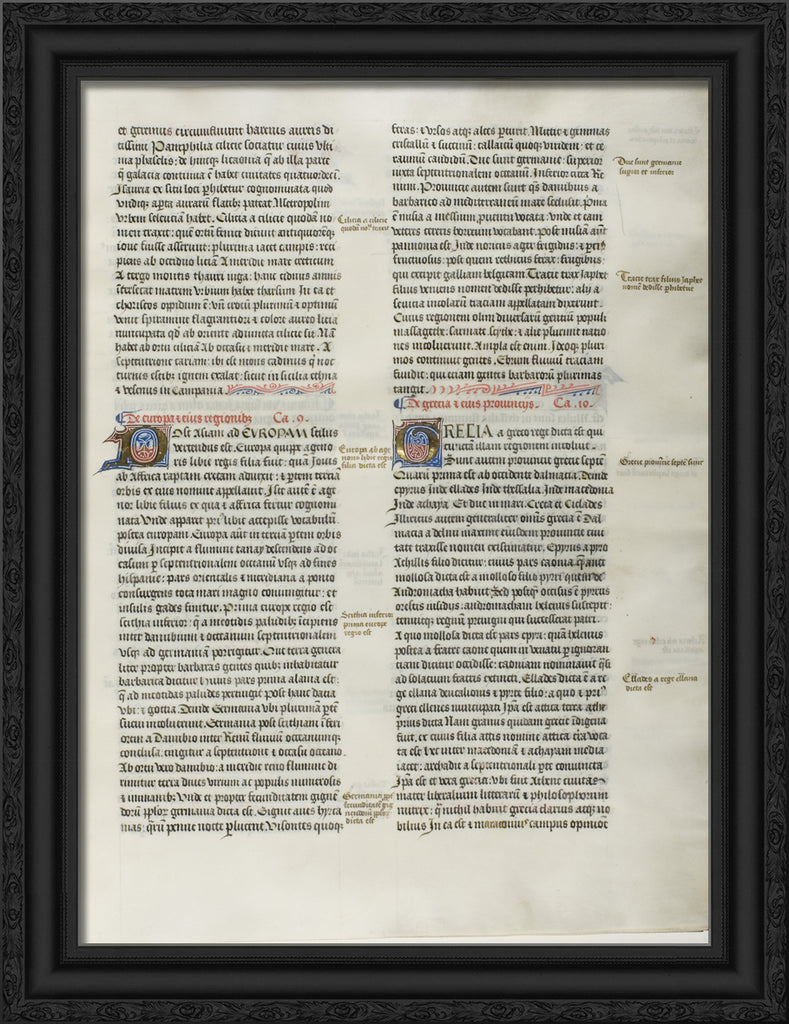 et geminus circumfluunt harenis aureis di
Pamphilia cilicie sociatur cuius
lia phaselis: de hincq; licaonia q̄ ab illa parte
q̄ galacia continua ē habet ciuitates quatuordeci.
Isauria ex situ loci phibetur cognominata quod
undiq; apta aurarū flatib; pateat Metropolim
urbem seleucia habet. Cilicia a cilice quodam no
men traxit: quē ortū fenice dicunt antiquiorēq;
ioue fuisse asserunt: plurima iacet campis: reci
piens ab occiduo licia A meridie mare creticum
A tergo montis thauri iuga: hanc cidnus amnis
īterserat matrem urbium habet tharsum In ea et
opidum ē: ūn crocū plurimū & optimū
venit spiramine flagrantior & colore aureo licia
nuncupata qd ab oriente adiuncta cilicie sit. Nā
habet ab ortu ciliciā Ab occasu & meridie mare. A
septentrione cariam: ibi est mons q noc
turnis estib; ignem exalat: sicut in sicilia ethna
& vesenus in Campania.
De europa & eius regionib; Ca. 9.
POst Asiam ad EVROPAM stilus
vertendus est. Europa quippe agenō
ris libie regis filia fuit: quā Jouis
ab Affrica raptam cretam aduexit: & ptem terciā
orbis ex eius nomine appellauit. Iste autē ē age
nor libie filius ex qua & affrica fertur cognomi
nata Unde apparet pri libie accepisse vocabulū.
postea europam. Europa aūt in terciā ptem orbis
diuisa Incipit a flumine tanay descendens ad oc
casum p septentrionalem oceanū usq; ad fines
hispanie: pars orientalis & meridiana a ponto
consurgens tota mari magno coniungitur: et
insulis gades finitur. Prima europe regio est
scithia inferior: q̄ a meotidis paludib; īcipiens
inter danubium & oceanum septentrionalem
usq; ad germaniā porrigitur. Que terra genera
liter propter barbaras gentes quib; inhabitatur
barbarica dicitur & huius pars prima alania est:
q̄ ad meotidas paludes pertingit post hanc dacia
vbi: & gottia. Deinde Germania vbi plurimā ptē
sueui incoluerunt. Germania post scithiam īferi
orem a Danubio inter Renū fluuiū oceanumq;
conclusa. cingitur a septentrione & occasu oceano.
Ab ortu vero danubio: a meridie reno flumine di
rimitur terra diues virium ac populis numerosis
& immanib; Unde et propter fecunditatem gignē
dorū pplor germania dicta est. Gignit aues hyrca
nias: qrū penne nocte plucent Uisontes quoq;
feras: & ursos atq; alces pturit. Mittit & gemmas
cristallū & succinū: callaicū quoq; viridem: et ce
rauniū candidum. Due sunt germanie: superior
iuxta septentrionalem oceanū. Inferior circa Re
num. Prouincie autem sunt q̄s danubius a
barbarico ad mediterraneū mare secludit. Pma
ē misia a messium puentu vocata: vnde et eam
veteres cereris horreum vocabant. post misiā aūt
pannonia est. Inde noricus ager frigidus: & pcius
fructuosus: post quem rethicus ferax frugibus:
qui excipit galliam belgicam Tracie tirax Japhet
filius veniens nomen dedisse perhibetur: alij a
seuicia incolarū traciam appellatam dixerunt.
Cuius regionem olim diuersarū gentiū populi
massagethe: sarmate scythe: & alie plurime natio
nes incoluerunt. Ampla est enim. Ideoq; pluri
mos continuit gentes. Ebrum fluuiū traciam
fundit: qui etiam gentes barbarorū plurimas
tangit.
De grecia & eius prouincijs. Ca. 10.
GRECIA a greco rege dicta est qui
cunctā illam regionem incoluit.
Sunt autem prouincie grecie septē
Quarū prima est ab occidente dalmacia. Deinde
epyrus Inde ellades Inde thessalia. Inde macedonia
Inde achaya. Et due in mari. Creta et Ciclades
Illiricus autem generaliter omis grecia ē Dal
macia a delmi maxime eiusdem prouincie ciui
tate traxisse nomen existimatur. Epyrus a pyro
Achillis filio dicitur: cuius pars caonia q̄ ante
molossa dicta est a molosso filio pyrri quē de
Andromacha habuit Sed postq; occisus ē pyrrus
orestis insidijs: andromacham helenus suscepit:
tenuitq; regnū preuigni qui successerat patri.
A quo molossa dicta est pars epyri: quā helenus
postea a fratre caone quem in venatu pignoran
ciam dicitur occidisse: caoniam nominauit q̄si
ad solacium fratris extincti. Ellades dicta ē a re
ge ellana deucalionis & pyrre filio: a quo & pri
greci ellenes nuncupati Ipa est attica terra athe
prius dicta Nam granus quidam grecie īdigena
fuit. ex cuius filia attis nomine attica & ea voca
ta est hec inter macedoniā & achayam media
iacet: archadie a septentrionali pte coniuncta
Ipa est et vera grecia: vbi fuit Athene ciuitas
mater liberalium litterarū & philosophorum
nutrix: q̄ nichil habuit grecia clarius atq; no
bilius In ea est & maratonius campus opinioē
Cilicia a cilice
quodā nom̄ traxit
Europa ab age
noris libie regis
filia dicta est
Scithia inferior
prima europe
regio est
Germania ppt
fecunditatē gig
nendorū pplor
dicta est
Due sunt germanie
supior et inferior
Tracie tirax filius Japhet
nomen dedisse phibetur
Grecie prouincie septē sunt
Ellades a rege ellana
dicta est